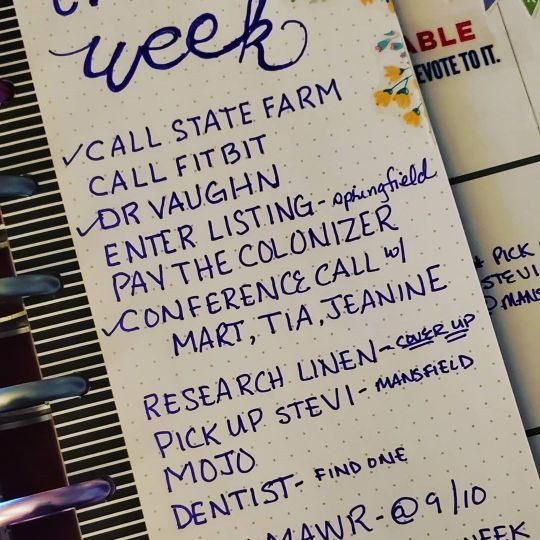 week
✓CALL STATE FARM
CALL FITBIT
✓DR VAUGHN
ENTER LISTING - springfield
PAY THE COLONIZER
✓CONFERENCE CALL w/
MART, TIA, JEANINE
RESEARCH LINEN - COVER UP
PICK UP STEVI - MANSFIELD
MOJO
DENTIST - FIND ONE
MAWR - @ 9/10
WEEK
ABLE
EVOTE TO IT.
PICK
STEVI
@ MANS